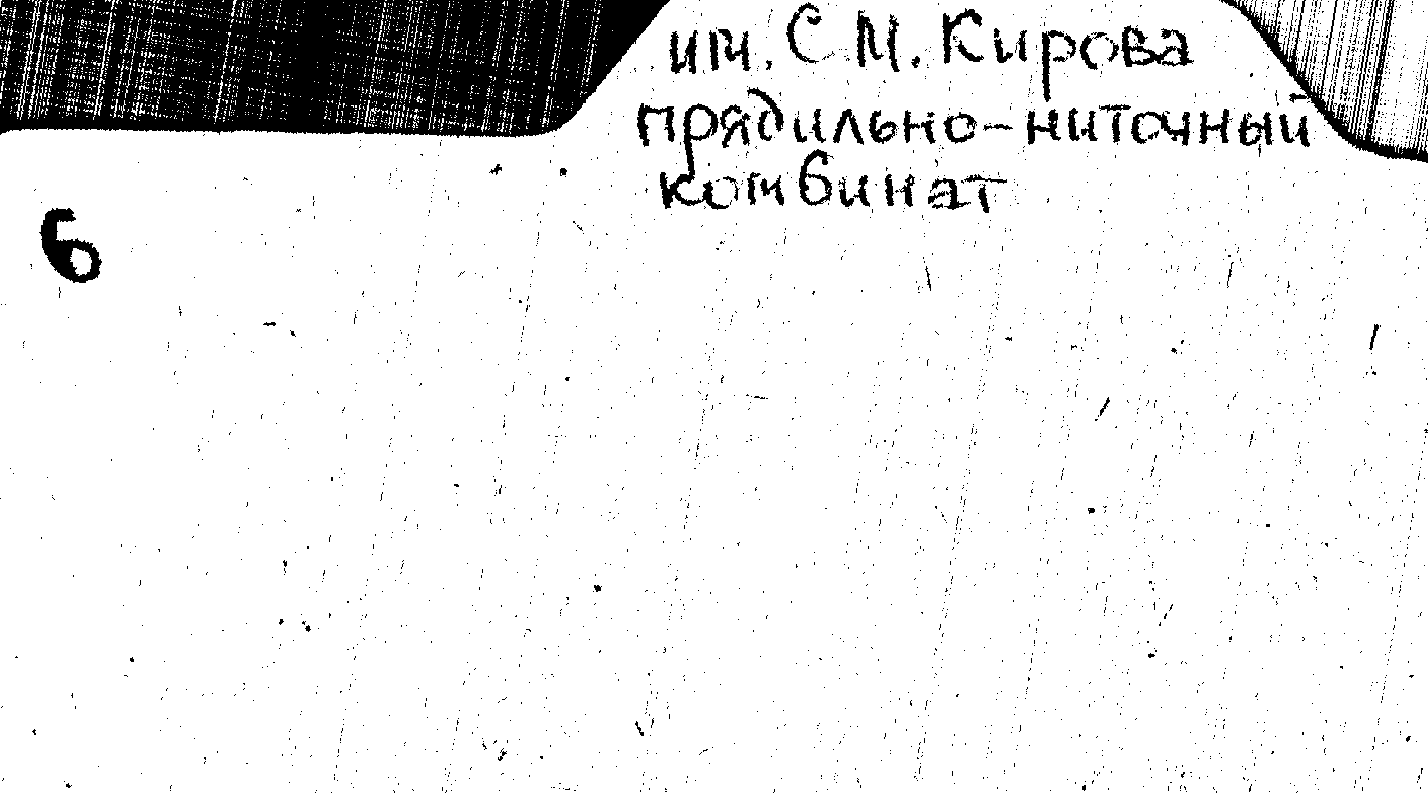 им. С.М. Кирова
прядильно-ниточный
комбинат
6